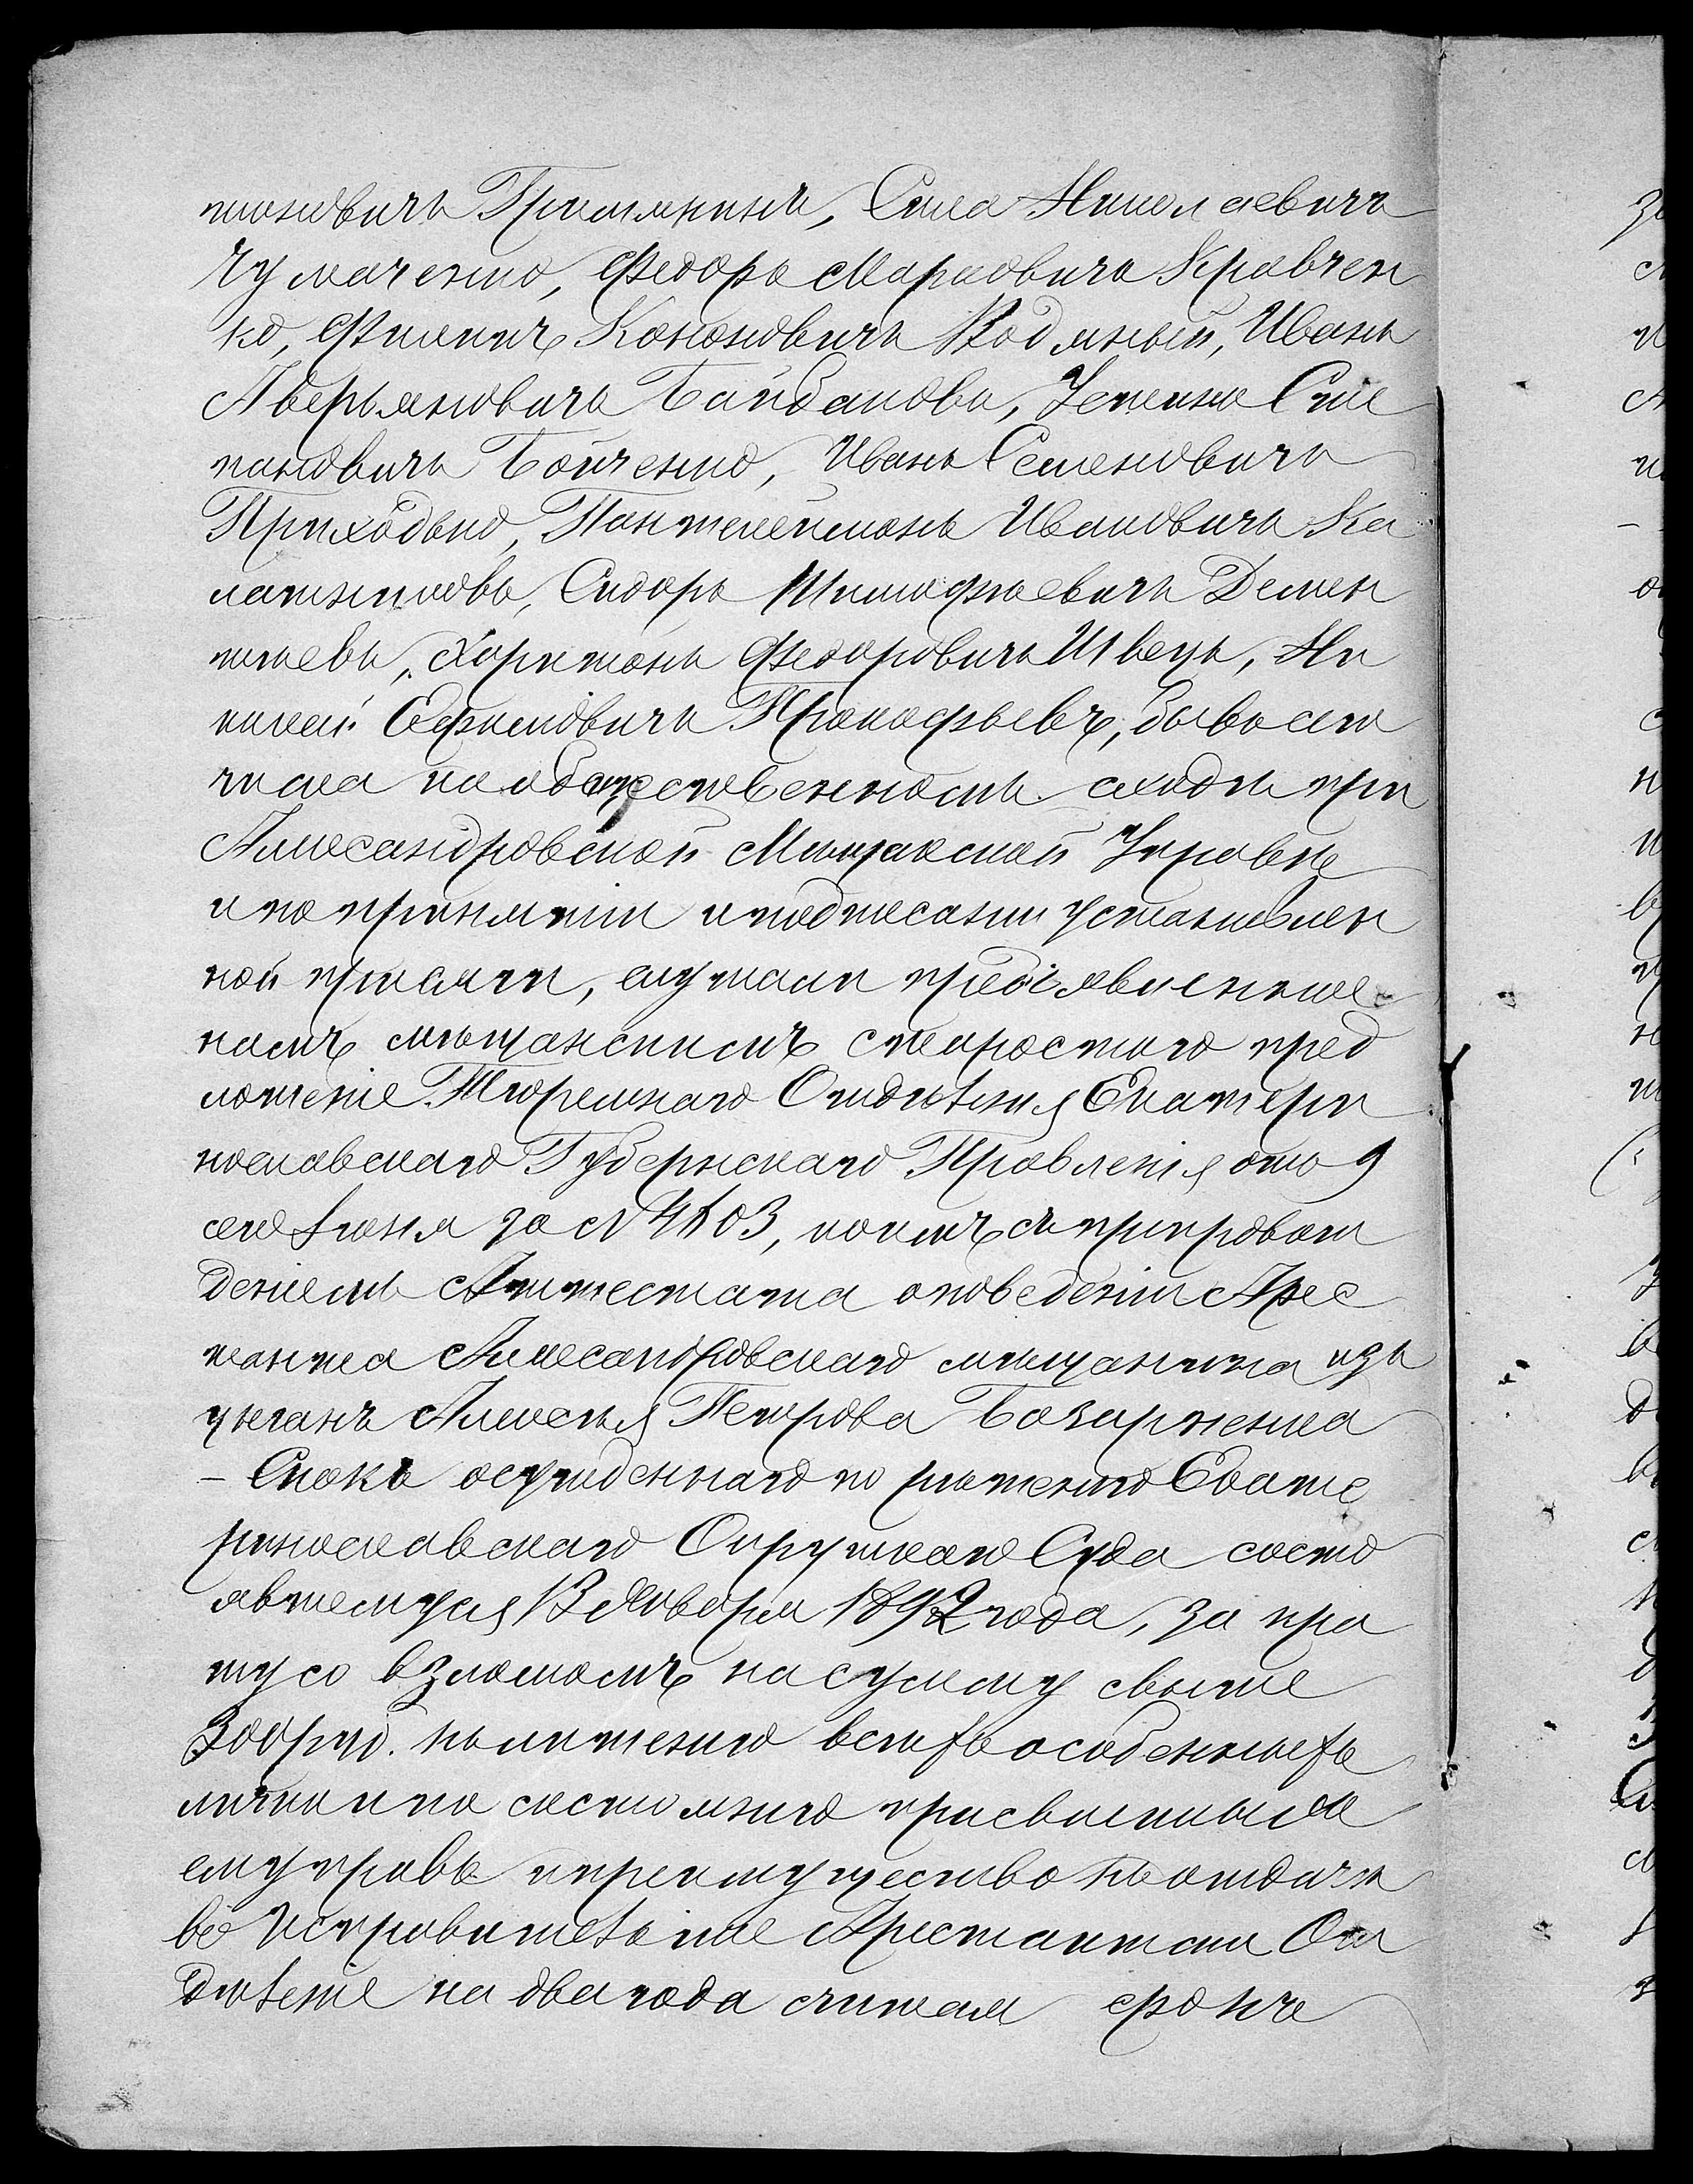 моновичъ Сила Николаевичъ
Чумаченко, Федоръ Марковичъ Кравчен
ко, Филипъ Кононовичъ Водяный, Иванъ
Аверьяновичъ Байбаковъ, Сте
пановичъ Бойченко, Иванъ Семеновичъ
Приходько, Пантелеймонъ Ивановичъ Ка
лашниковъ, Сидоръ Тимофѣевичъ Демен
тьевъ, Харитонъ Федоровичъ Швецъ, Ни
колай Ефимовичъ Прокофьевъ, бывъ сего
числа на общественномъ сходѣ при
Александровской Мѣщанской Управѣ
и по принятіи и подписаніи установлен
ной присяги, слушали предъявленное
намъ мѣщанскимъ старостою пред
ложеніе Тюремнаго Отдѣленія Екатери
нославскаго Губернскаго Правленія отъ 9
сего Іюня за № 4603, коимъ съ препровож
деніемъ Аттестата о поведеніи Арес
танта Александровскаго мѣщанина изъ
цыганъ Алексѣя Петрова Базарненка
– осужденнаго по рѣшенію Екате
ринославскаго Окружнаго Суда состо
явшемуся 13 Января 1892 года, за кра
жу со взломомъ на сумму свыше
300 руб. къ лишенію всѣхъ особенныхъ
лично и по состоянію присвоенныхъ
ему правъ и преимуществъ къ отдачѣ
въ Исправительное Арестантское От
дѣленіе на два года считая срокъ